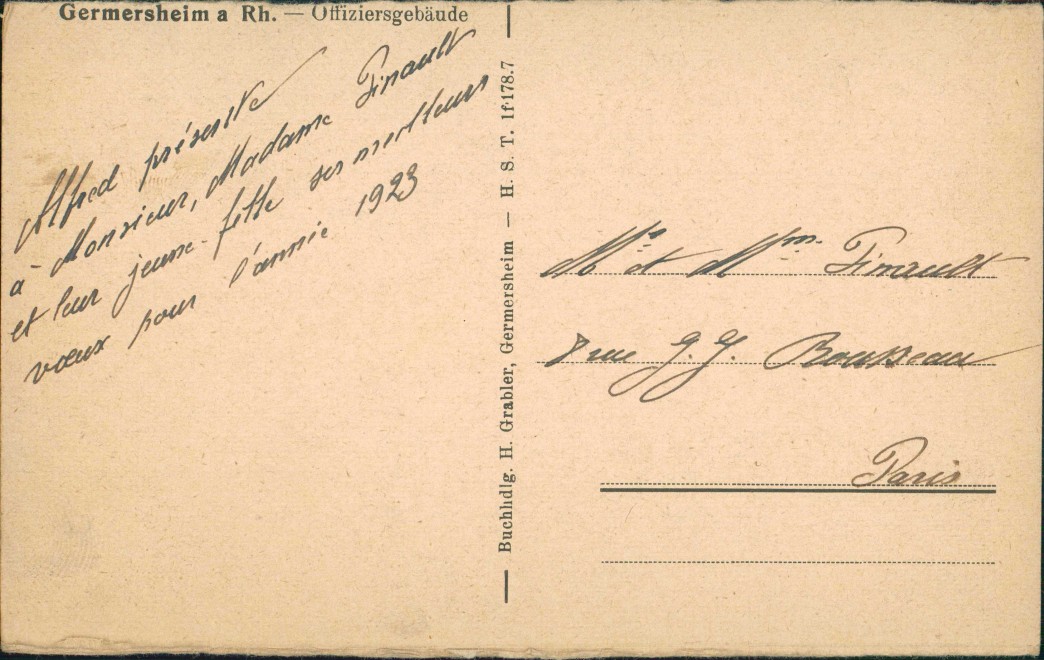 Germersheim a Rh. — Offiziersgebäude
Alfred présente
à Monsieur, Madame Finault
et leur jeune fille ses meilleurs
vœux pour l'année 1923
Buchhdlg. H. Grabler, Germersheim — H. S. T. 1f·178.7
Mr et Mme Finault
8 rue J. J. Rousseau
Paris